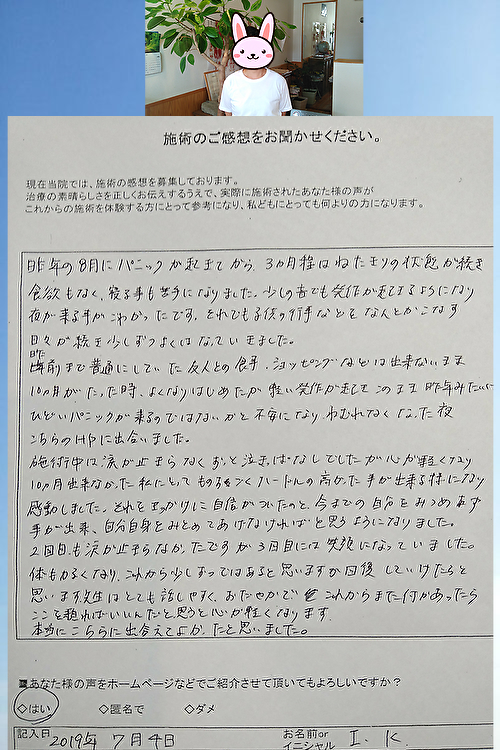 施術のご感想をお聞かせください。
現在当院では、施術の感想を募集しております。
治療の素晴らしさを正しくお伝えするうえで、実際に施術されたあなた様の声が
これからの施術を体験する方にとって参考になり、私どもにとっても何よりの力になります。
昨年の8月にパニックが起きてから、3カ月程はねたきりの状態が続き
食欲もなく、寝る事も苦手になりました。少しの音でも発作が起きてるようになり
夜が来る事がこわかったです。それでも子供の行事などをなんとかこなす
日々が続き少しずつよくはなっていきました。
昨年前まで普通にしていた友人との食事、ショッピングなどは出来ないまま
10カ月がたった時、よくなりはじめたが軽い発作が起きて このまま昨年みたいに
ひどいパニックが来るのではないかと不安になり ねむれなくなった夜
こちらのHPに出会いました。
施術中は涙が止まらなく ずっと泣きっぱなしでしたが心が軽くなり
10カ月出来なかった私にとってものすごくハードルの高かった事が出来る様になり
感動しました。それをきっかけに自信がついたのと、今までの自分をみつめなおす
事が出来、自分自身をみとめてあげなければと思うようになりました。
2回目も涙が止まらなかったですが 3回目には笑顔になっていました。
体もかるくなり、これから少しずつではあると思いますが回復していけたらと
思います。先生はとても話しやすく、おだやかで これからまた何かあったら
ここを頼ればいいんだと思うと心が軽くなります。
本当にこちらに出会えてよかったと思いました。
■あなた様の声をホームページなどでご紹介させて頂いてもよろしいですか?
◇はい ◇匿名で ◇ダメ
記入日 2019年 7月4日 お名前or
イニシャル I. K.